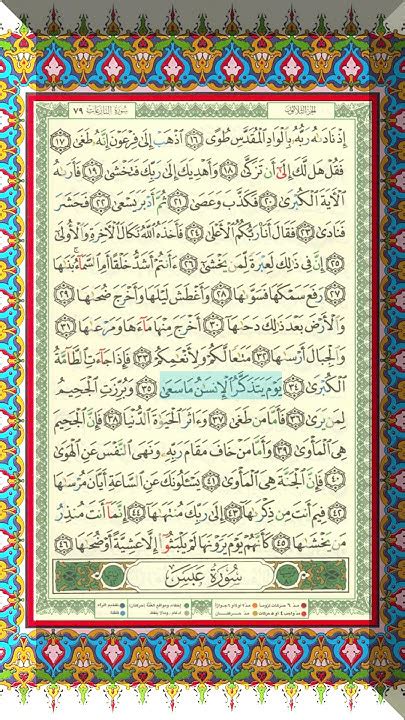 سورة النازعات ٧٩ الجزء الثلاثون
إِذْ نَادَىٰهُ رَبُّهُۥ بِٱلْوَادِ ٱلْمُقَدَّسِ طُوًى ١٦ ٱذْهَبْ إِلَىٰ فِرْعَوْنَ إِنَّهُۥ طَغَىٰ ١٧
فَقُلْ هَل لَّكَ إِلَىٰٓ أَن تَزَكَّىٰ ١٨ وَأَهْدِيَكَ إِلَىٰ رَبِّكَ فَتَخْشَىٰ ١٩ فَأَرَىٰهُ
ٱلْـَٔايَةَ ٱلْكُبْرَىٰ ٢٠ فَكَذَّبَ وَعَصَىٰ ٢١ ثُمَّ أَدْبَرَ يَسْعَىٰ ٢٢ فَحَشَرَ
فَنَادَىٰ ٢٣ فَقَالَ أَنَا۠ رَبُّكُمُ ٱلْأَعْلَىٰ ٢٤ فَأَخَذَهُ ٱللَّهُ نَكَالَ ٱلْـَٔاخِرَةِ وَٱلْأُولَىٰٓ
٢٥ إِنَّ فِى ذَٰلِكَ لَعِبْرَةً لِّمَن يَخْشَىٰٓ ٢٦ ءَأَنتُمْ أَشَدُّ خَلْقًا أَمِ ٱلسَّمَآءُ ۚ بَنَىٰهَا
٢٧ رَفَعَ سَمْكَهَا فَسَوَّىٰهَا ٢٨ وَأَغْطَشَ لَيْلَهَا وَأَخْرَجَ ضُحَىٰهَا ٢٩
وَٱلْأَرْضَ بَعْدَ ذَٰلِكَ دَحَىٰهَآ ٣٠ أَخْرَجَ مِنْهَا مَآءَهَا وَمَرْعَىٰهَا ٣١
وَٱلْجِبَالَ أَرْسَىٰهَا ٣٢ مَتَٰعًا لَّكُمْ وَلِأَنْعَٰمِكُمْ ٣٣ فَإِذَا جَآءَتِ ٱلطَّآمَّةُ
ٱلْكُبْرَىٰ ٣٤ يَوْمَ يَتَذَكَّرُ ٱلْإِنسَٰنُ مَا سَعَىٰ ٣٥ وَبُرِّزَتِ ٱلْجَحِيمُ
لِمَن يَرَىٰ ٣٦ فَأَمَّا مَن طَغَىٰ ٣٧ وَءَاثَرَ ٱلْحَيَوٰةَ ٱلدُّنْيَا ٣٨ فَإِنَّ ٱلْجَحِيمَ
هِىَ ٱلْمَأْوَىٰ ٣٩ وَأَمَّا مَنْ خَافَ مَقَامَ رَبِّهِۦ وَنَهَى ٱلنَّفْسَ عَنِ ٱلْهَوَىٰ
٤٠ فَإِنَّ ٱلْجَنَّةَ هِىَ ٱلْمَأْوَىٰ ٤١ يَسْـَٔلُونَكَ عَنِ ٱلسَّاعَةِ أَيَّانَ مُرْسَىٰهَا
٤٢ فِيمَ أَنتَ مِن ذِكْرَىٰهَآ ٤٣ إِلَىٰ رَبِّكَ مُنتَهَىٰهَآ ٤٤ إِنَّمَآ أَنتَ مُنذِرُ
مَن يَخْشَىٰهَا ٤٥ كَأَنَّهُمْ يَوْمَ يَرَوْنَهَا لَمْ يَلْبَثُوٓا۟ إِلَّا عَشِيَّةً أَوْ ضُحَىٰهَا ٤٦
سُورَةُ عَبَسَ